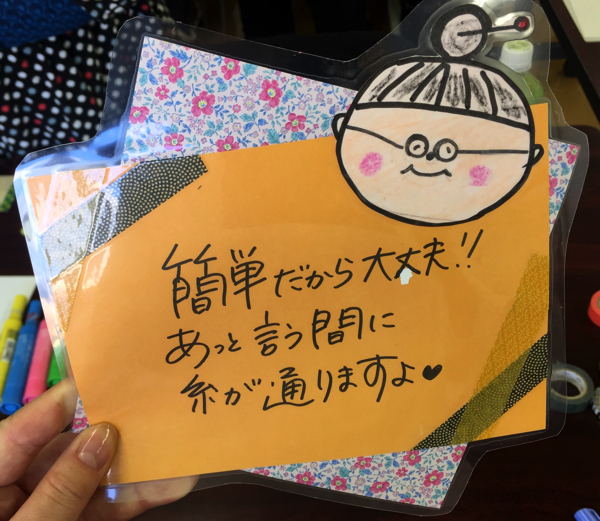 簡単だから大丈夫!!
あっと言う間に
糸が通りますよ♥